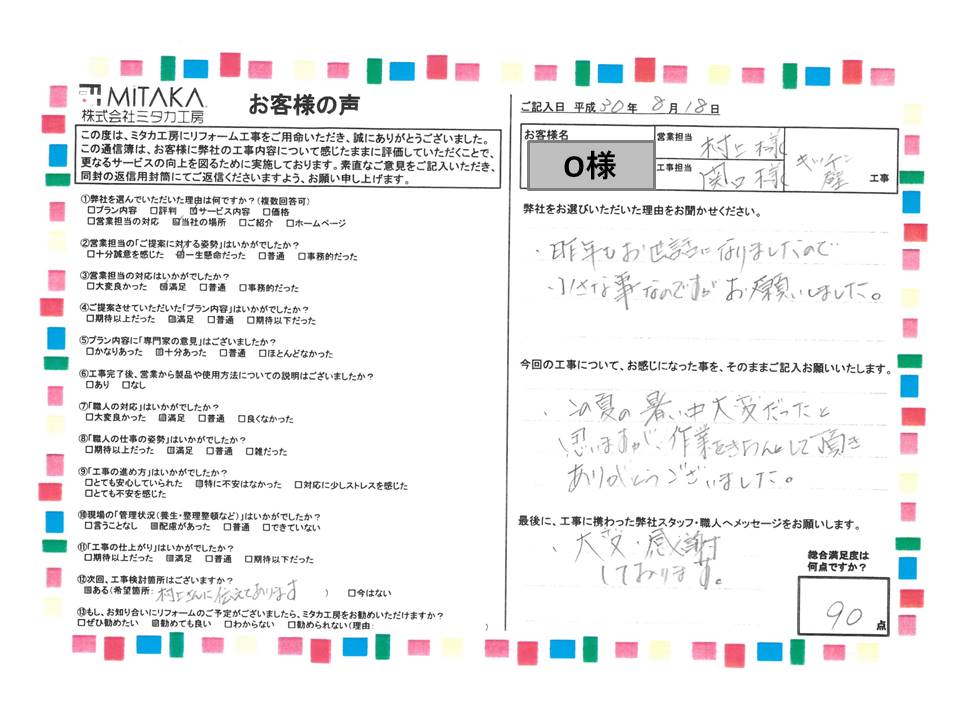 MiTAKA
株式会社ミタカ工房
お客様の声
この度は、ミタカ工房にリフォーム工事をご用命いただき、誠にありがとうございました。
この通信簿は、お客様に弊社の工事内容について感じたままに評価していただくことで、
更なるサービスの向上を図るために実施しております。素直なご意見をご記入いただき、
同封の返信用封筒にてご返信くださいますよう、お願い申し上げます。
①弊社を選んでいただいた理由は何ですか?(複数回答可)
□プラン内容 □評判 ☑サービス内容 □価格
□営業担当の対応 ☑当社の場所 □ご紹介 □ホームページ
②営業担当の「ご提案に対する姿勢」はいかがでしたか?
□十分誠意を感じた ☑一生懸命だった □普通 □事務的だった
③営業担当の対応はいかがでしたか?
□大変良かった ☑満足 □普通 □事務的だった
④ご提案させていただいた「プラン内容」はいかがでしたか?
□期待以上だった ☑満足 □普通 □期待以下だった
⑤プラン内容に「専門家の意見」はございましたか?
□かなりあった ☑十分あった □普通 □ほとんどなかった
⑥工事完了後、営業から製品や使用方法についての説明はございましたか?
□あり □なし
⑦「職人の対応」はいかがでしたか?
□大変良かった ☑満足 □普通 □良くなかった
⑧「職人の仕事の姿勢」はいかがでしたか?
□期待以上だった ☑満足 □普通 □雑だった
⑨「工事の進め方」はいかがでしたか?
□とても安心していられた ☑特に不安はなかった □対応に少しストレスを感じた
□とても不安を感じた
⑩現場の「管理状況(養生・整理整頓など)」はいかがでしたか?
□言うことなし ☑配慮があった □普通 □できていない
⑪「工事の仕上がり」はいかがでしたか?
□期待以上だった ☑満足 □普通 □期待以下だった
⑫次回、工事検討箇所はございますか?
☑ある(希望箇所: 村上さんに伝えております ) □今はない
⑬もし、お知り合いにリフォームのご予定がございましたら、ミタカ工房をお勧めいただけますか?
□ぜひ勧めたい ☑勧めても良い □わからない □勧められない(理由: )
ご記入日 平成 30 年 8 月 18 日
お客様名 O様
営業担当 村上様
工事担当 関口様
キッチン壁 工事
弊社をお選びいただいた理由をお聞かせください。
・昨年もお世話になりましたので
小さな事なのですが お願いしました。
今回の工事について、お感じになった事を、そのままご記入お願いいたします。
・この夏の暑い中大変だったと
思いますが、作業をきちんとして頂き
ありがとうございました。
最後に、工事に携わった弊社スタッフ・職人へメッセージをお願いします。
・大変・感謝
しております。
総合満足度は
何点ですか?
90 点